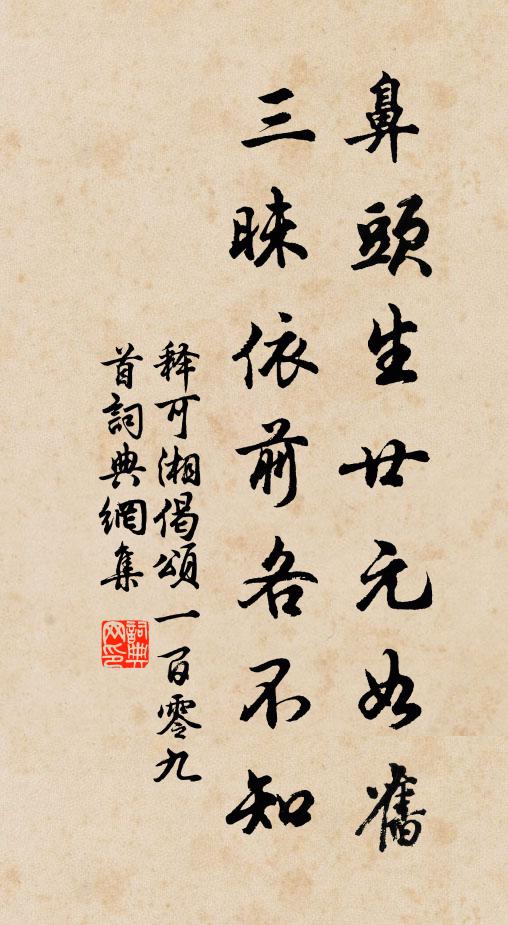 鼻頭生廿元如舊
三昧依前各不知
释可湘偈頌一百零九
首詞典網集
詞典
网印